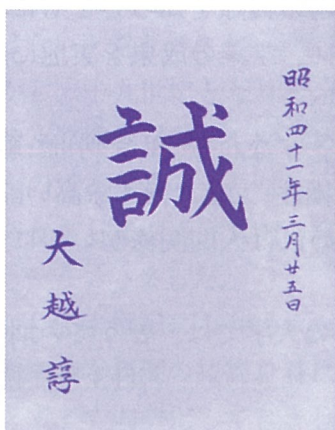 昭和四十一年三月廿五日
誠
大越諄